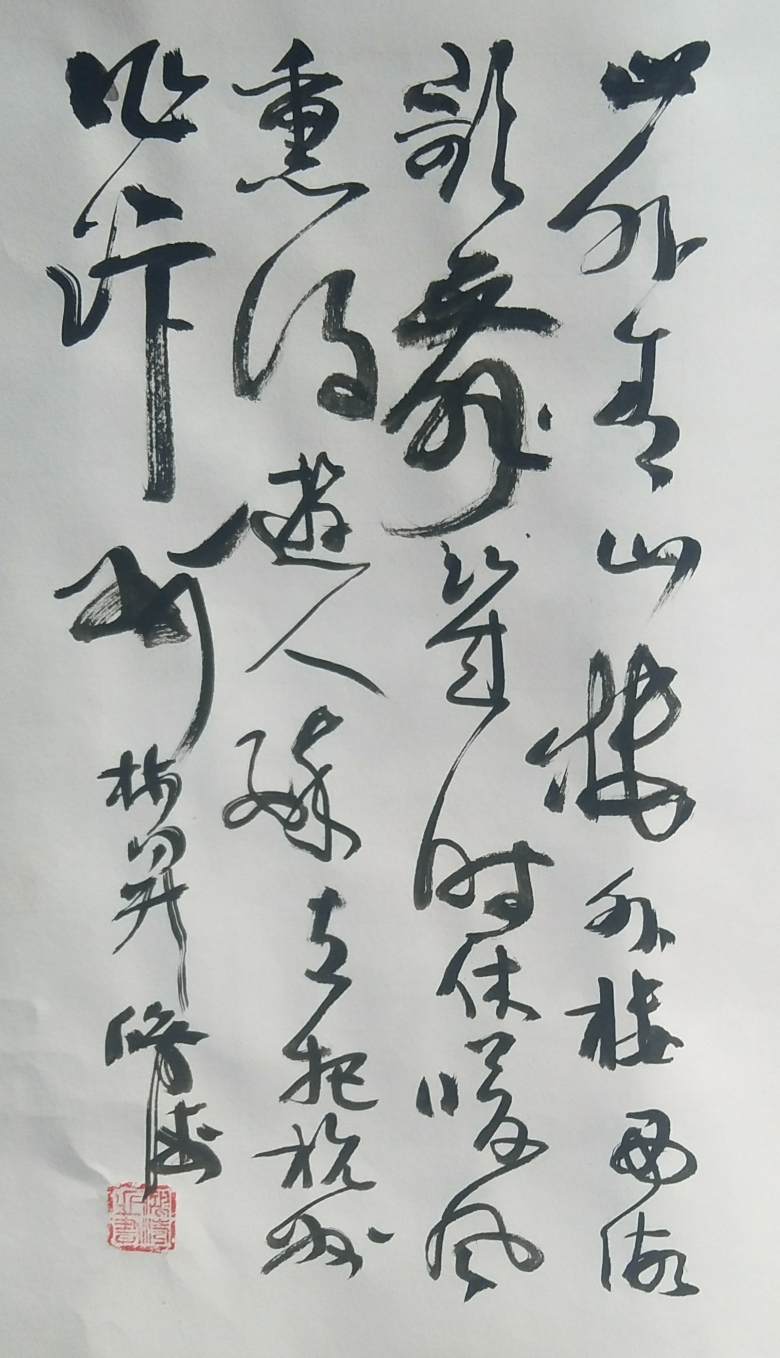 山外青山楼外楼西湖
歌舞几时休暖风
熏得遊人醉直把杭州
作汴州 林昇